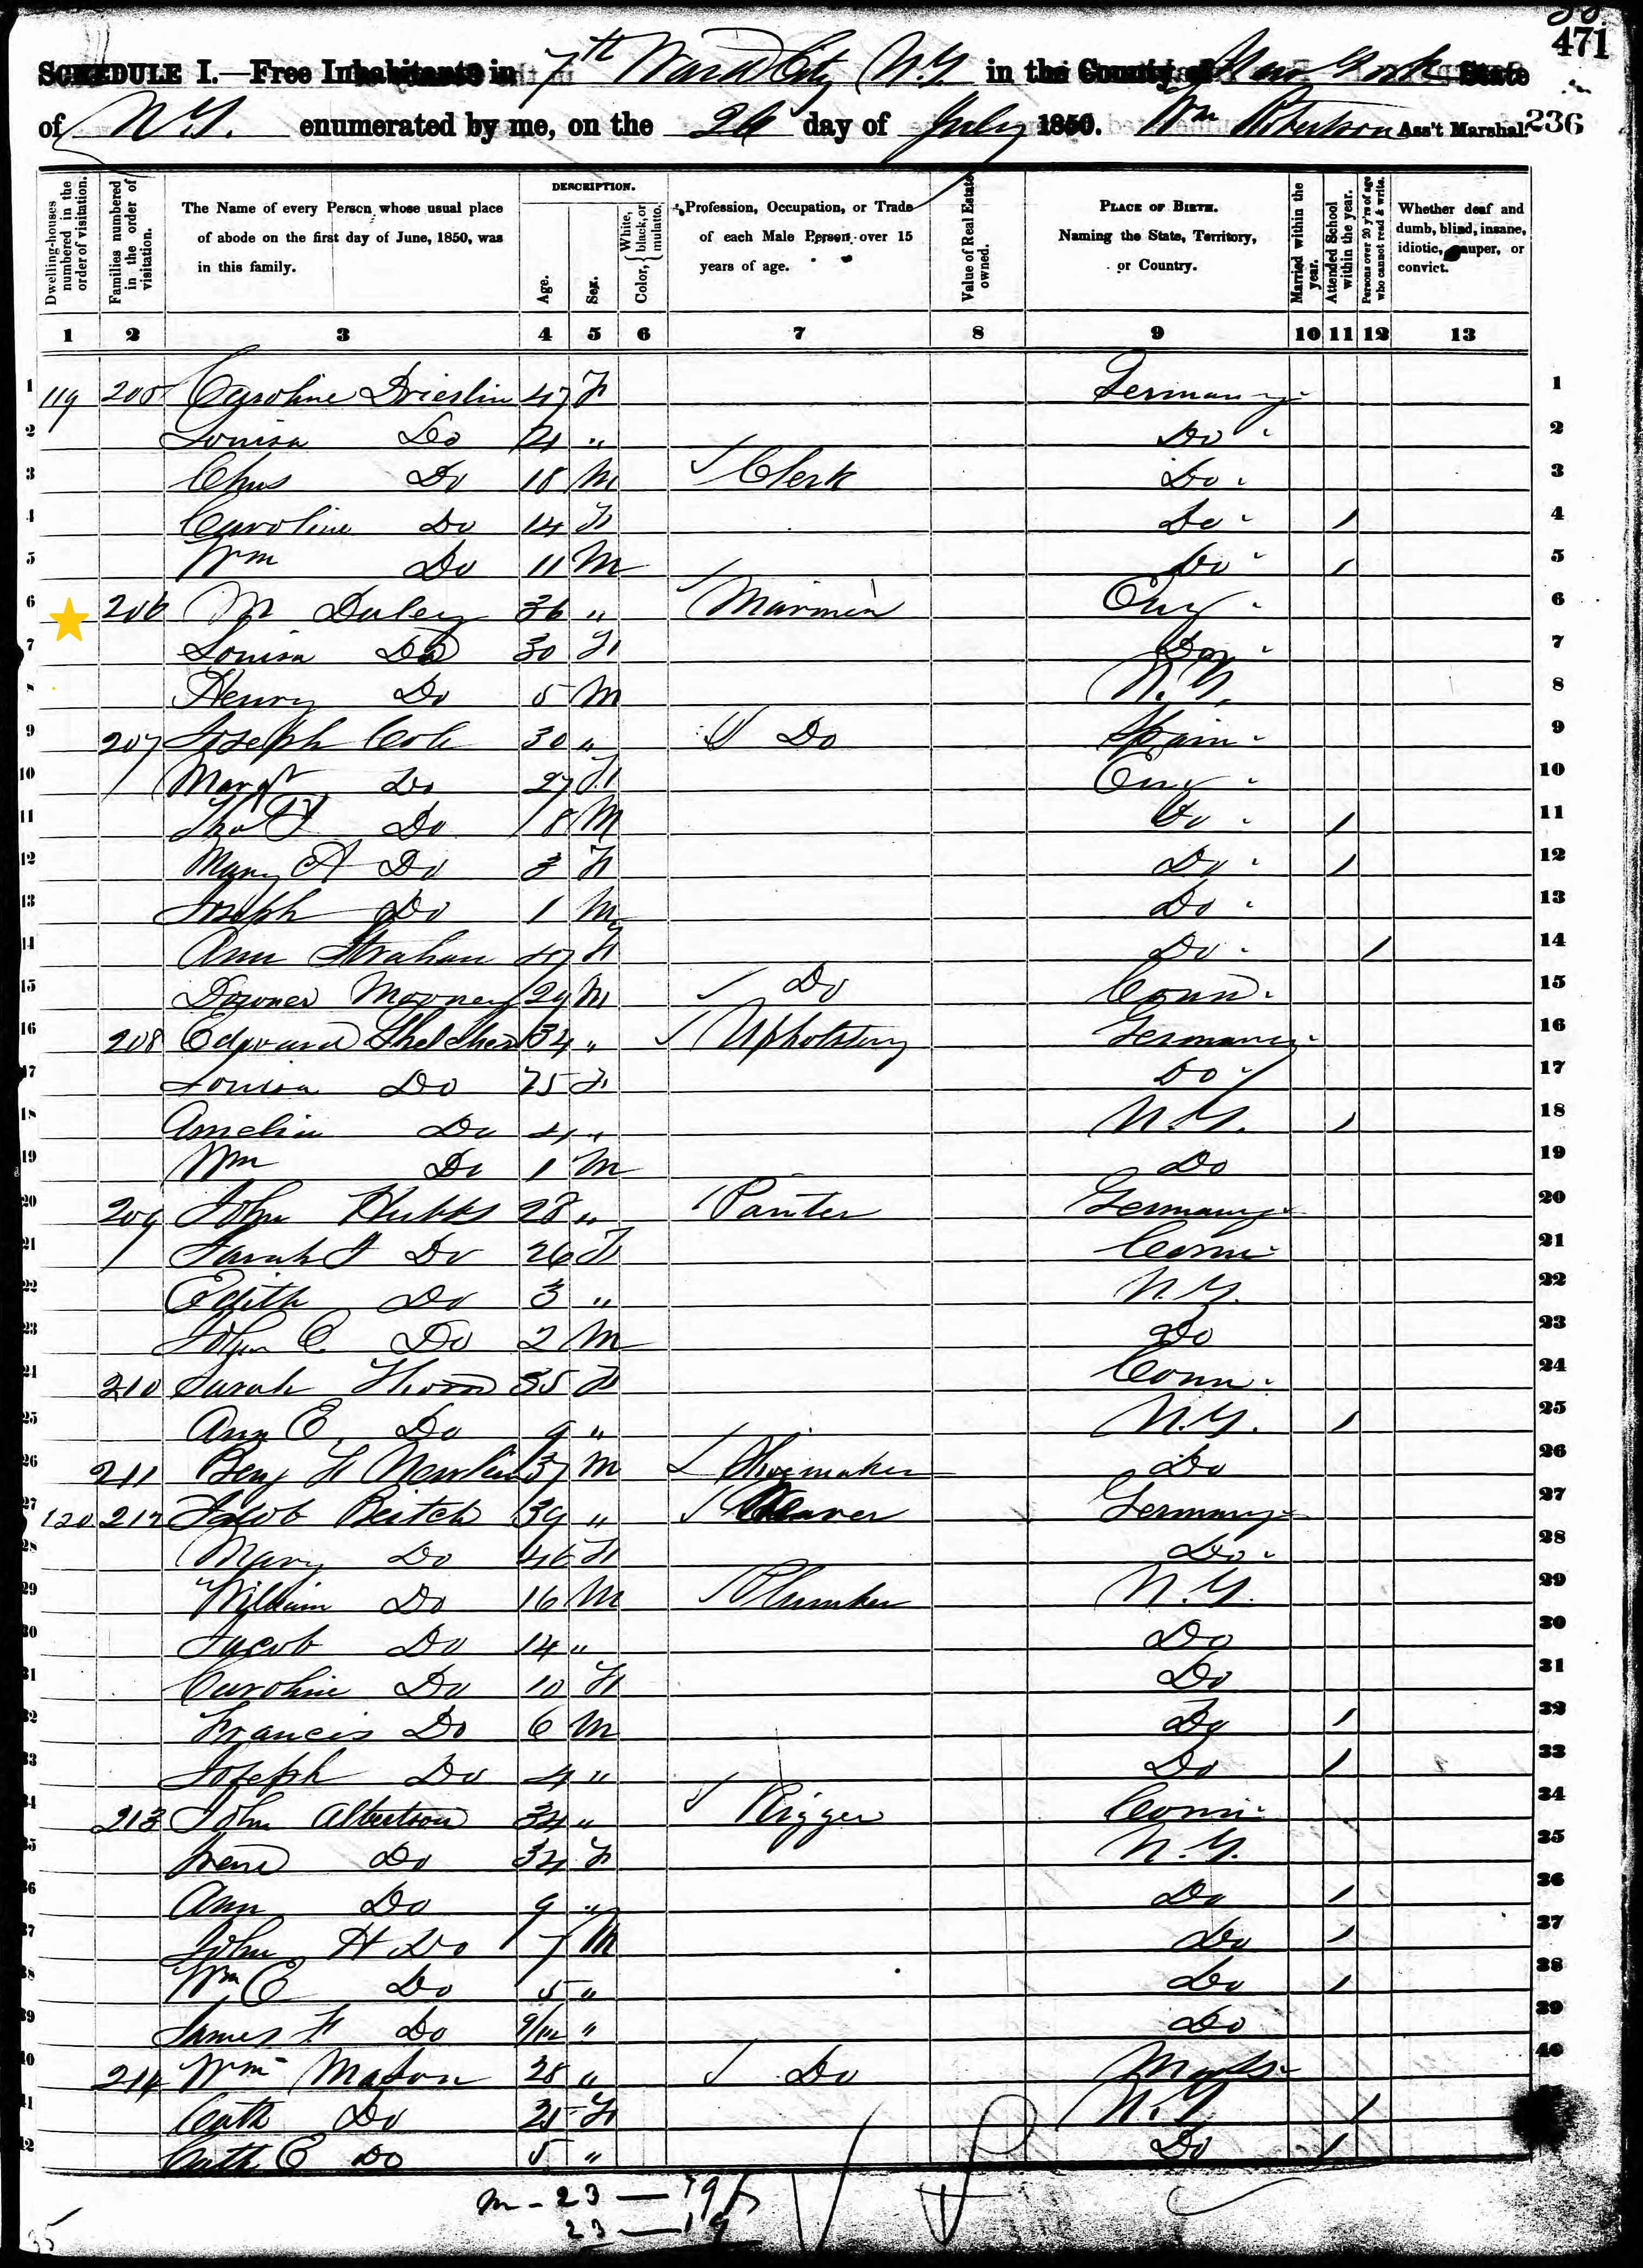 471
SCHEDULE I.—Free Inhabitants in 7th Ward City N.Y. in the County of New York State
of N.Y. enumerated by me, on the 26 day of July 1850. Wm Robertson Ass't Marshal. 236
DESCRIPTION.
Dwelling-houses numbered in the order of visitation.
Families numbered in the order of visitation.
The Name of every Person whose usual place of abode on the first day of June, 1850, was in this family.
Age.
Sex.
Color, { White, black, or mulatto.
Profession, Occupation, or Trade of each Male Person over 15 years of age.
Value of Real Estate owned.
PLACE OF BIRTH. Naming the State, Territory, or Country.
Married within the year.
Attended School within the year.
Persons over 20 y'rs of age who cannot read & write.
Whether deaf and dumb, blind, insane, idiotic, pauper, or convict.
1 2 3 4 5 6 7 8 9 10 11 12 13
1 119 205 Caroline 47 F Germany 1
2 Louisa Do 21 " Do 2
3 Chas Do 18 M Clerk Do 3
4 Caroline Do 14 F Do / 4
5 Wm Do 11 M Do / 5
6 206 M Duley 36 " Eng 6
7 Louisa Do 30 F Do 7
8 Henry Do 5 M N.Y. 8
9 207 Joseph Cole 30 " Do Spain 9
10 Margt Do 27 F Eng 10
11 Do 8 M Do / 11
12 Mary A Do 3 F Do / 12
13 Joseph Do 1 M Do 13
14 Ann Strahan 47 F Do / 14
15 Mooney 29 M Do Conn. 15
16 208 Edward 34 " Germany 16
17 Louisa Do 25 F Do 17
18 Amelia Do 4 " N.Y. / 18
19 Wm Do 1 M Do 19
20 209 John Hubbs 28 " Panter Germany 20
21 Sarah J Do 26 F Conn 21
22 Edith Do 3 " N.Y. 22
23 John C. Do 2 M Do 23
24 210 Sarah 35 F Conn. 24
25 Ann E. Do 9 " N.Y. / 25
26 211 Benj F 37 M Shoemaker Do 26
27 120 212 Jacob Beitch 39 " Germany 27
28 Mary Do 46 F Do 28
29 William Do 16 M Plumber N.Y. 29
30 Jacob Do 14 " Do 30
31 Caroline Do 10 F Do 31
32 Francis Do 6 M Do / 32
33 Joseph Do 4 " Do / 33
34 213 John Albertson 34 " Rigger Conn 34
35 Do 34 F N.Y. 35
36 Ann Do 9 " Do / 36
37 John H Do 7 M Do / 37
38 Wm E Do 5 " Do / 38
39 James F Do 9/12 " Do 39
40 214 Wm Mason 28 " Do 40
41 Cath Do 25 F N.Y. /
42 Cath E Do 5 " Do /
m - 23 — 19
23 — 19
35